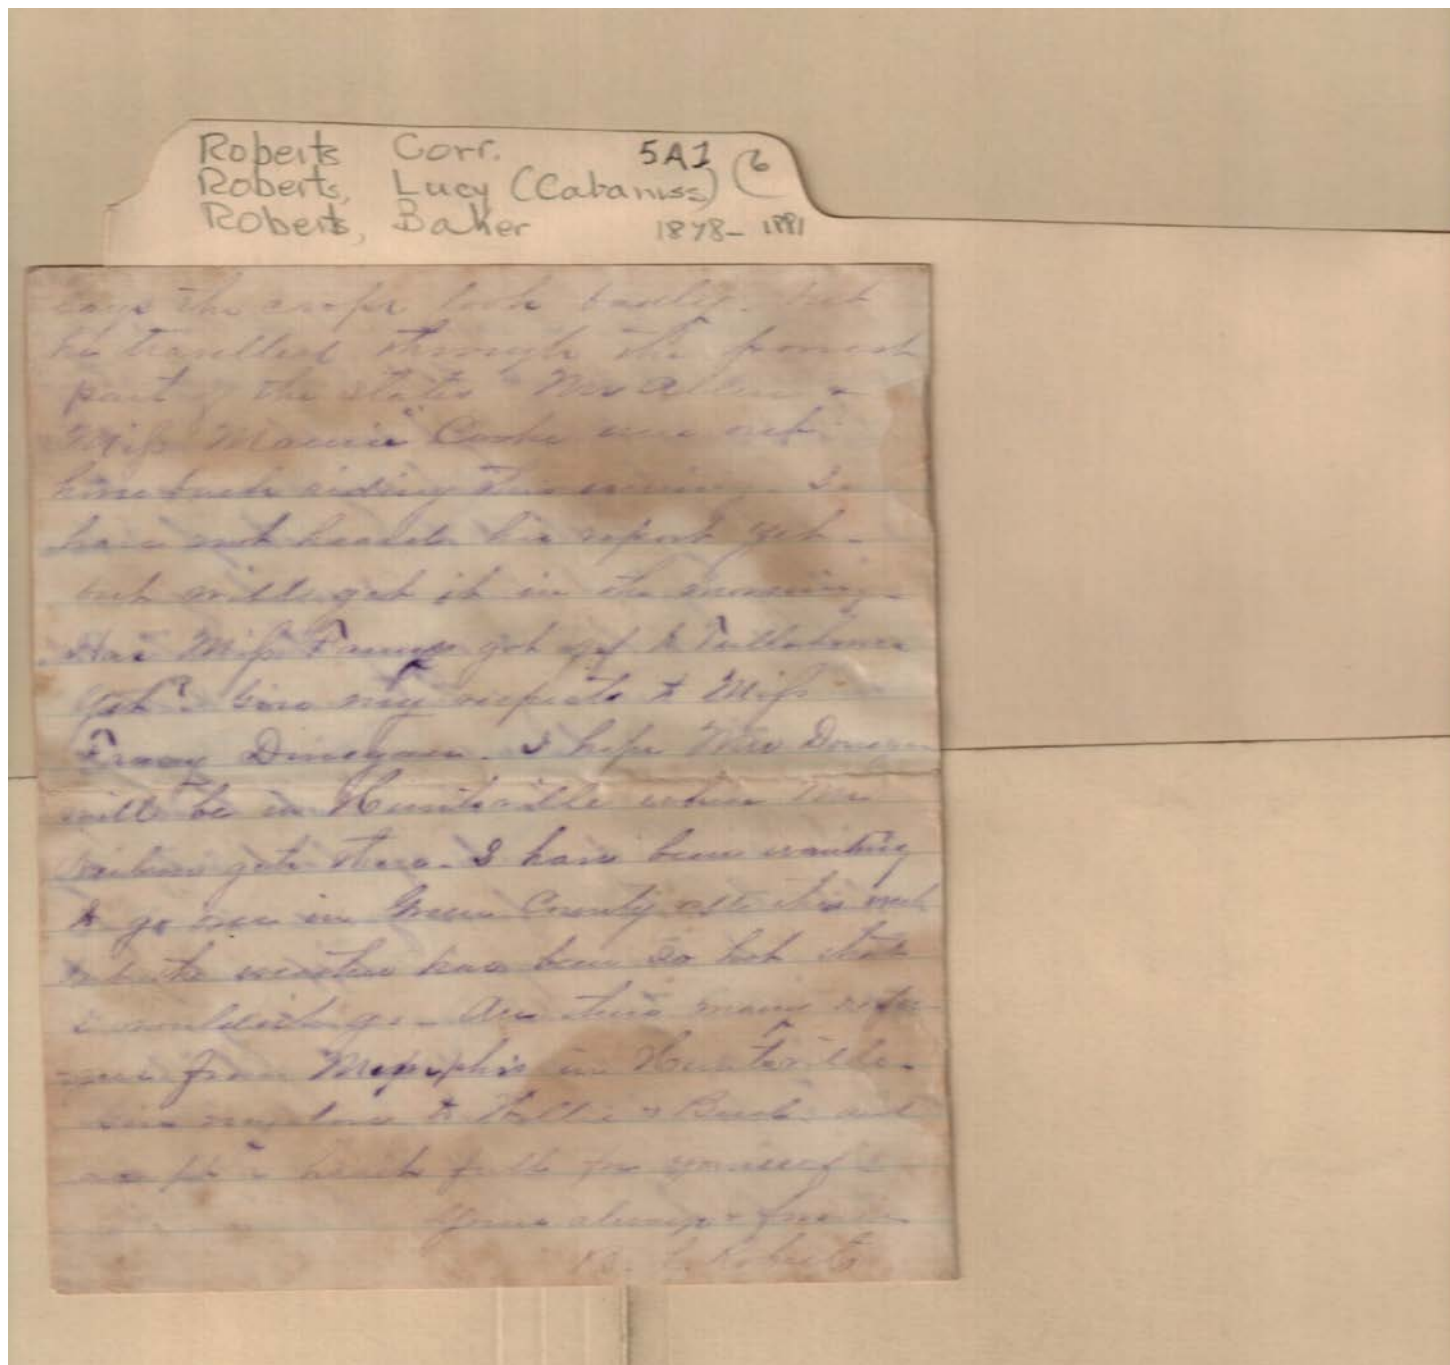 Roberts Corr. 5A1 6
Roberts, Lucy (Cabaniss)
Roberts, Baker 1878-1881
says the crops look badly. but
he travelled through the poorest
part of the state. Mr Allen &
Miss Mamie Cooke were out
horse back riding this evening. I
have not heard his report yet.
but will get it in the morning.
Has Miss Fanny got off to Tullahoma
yet? Give my respects to Miss
Fanny Donegan. I hope Miss Donegan
will be in Huntsville when Mr
gets there. I have been wanting
to go over in Green County all this week
but the weather has been so hot that
I couldnt go. Are there many
from Memphis in Huntsville.
Give my love to & Buck and
a heart full for yourself
Yours always & forever
B. Roberts